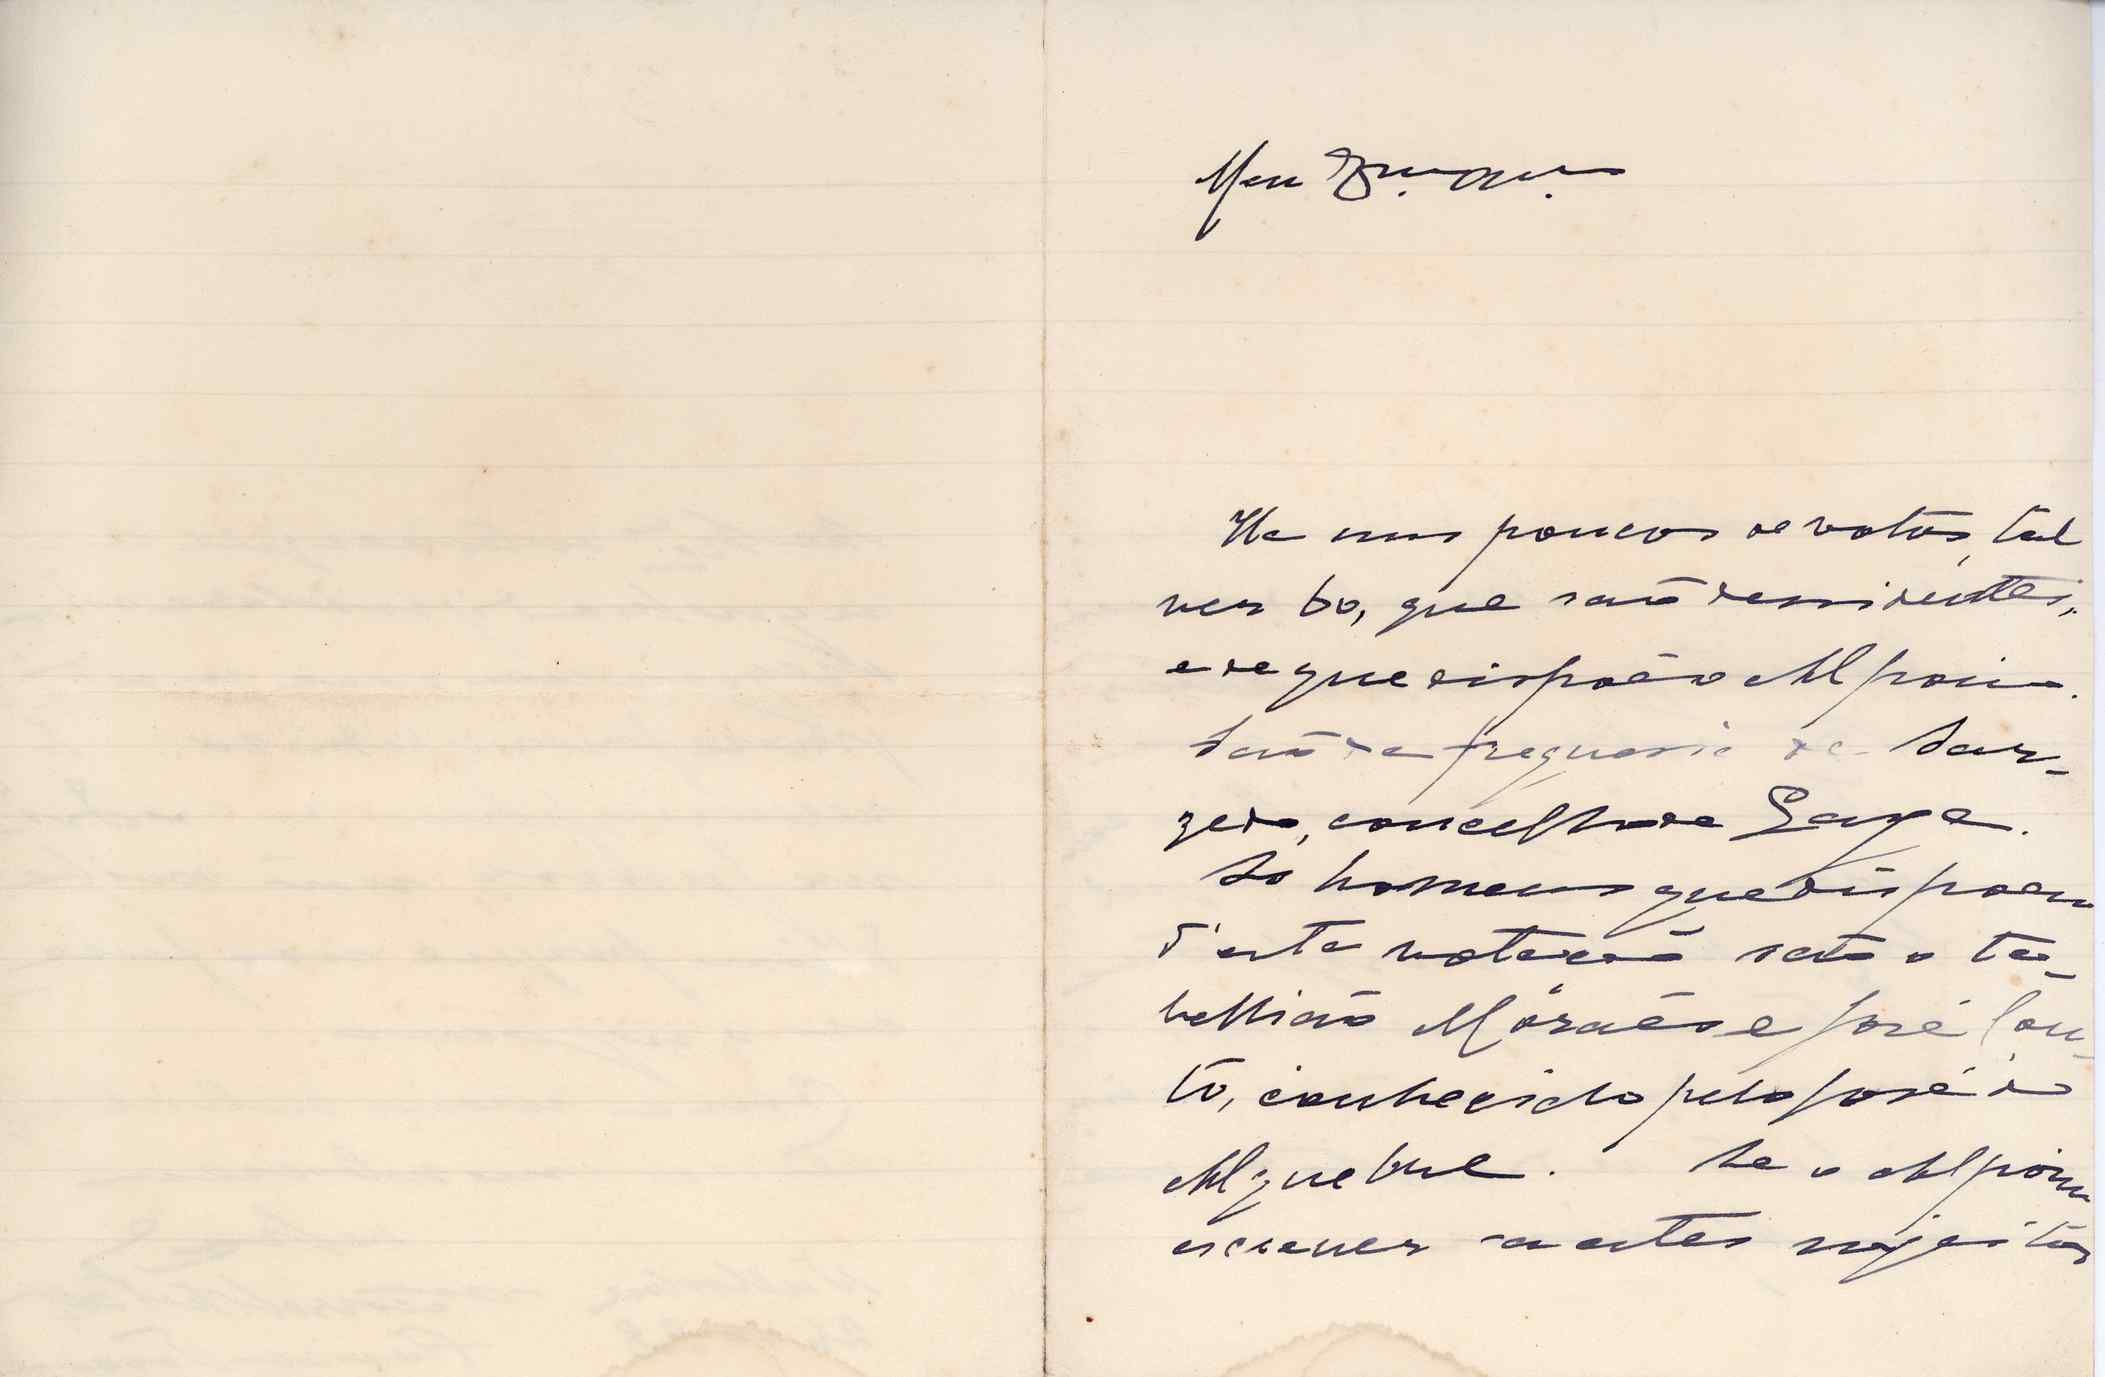 Meu Exmo. Amo.
Ha uns poucos de votos, tal
vez 60, que são dissidentes,
e de que dispõe o Alpoim.
São da freguesia de San-
, concelho de Gaya.
Os homens que dispoem
d'esta votação são o ta-
bellião Moraes e José Cou-
to, conhecido pelo José do
Alquebre. Se o Alpoim
escrever a estes sujeitos